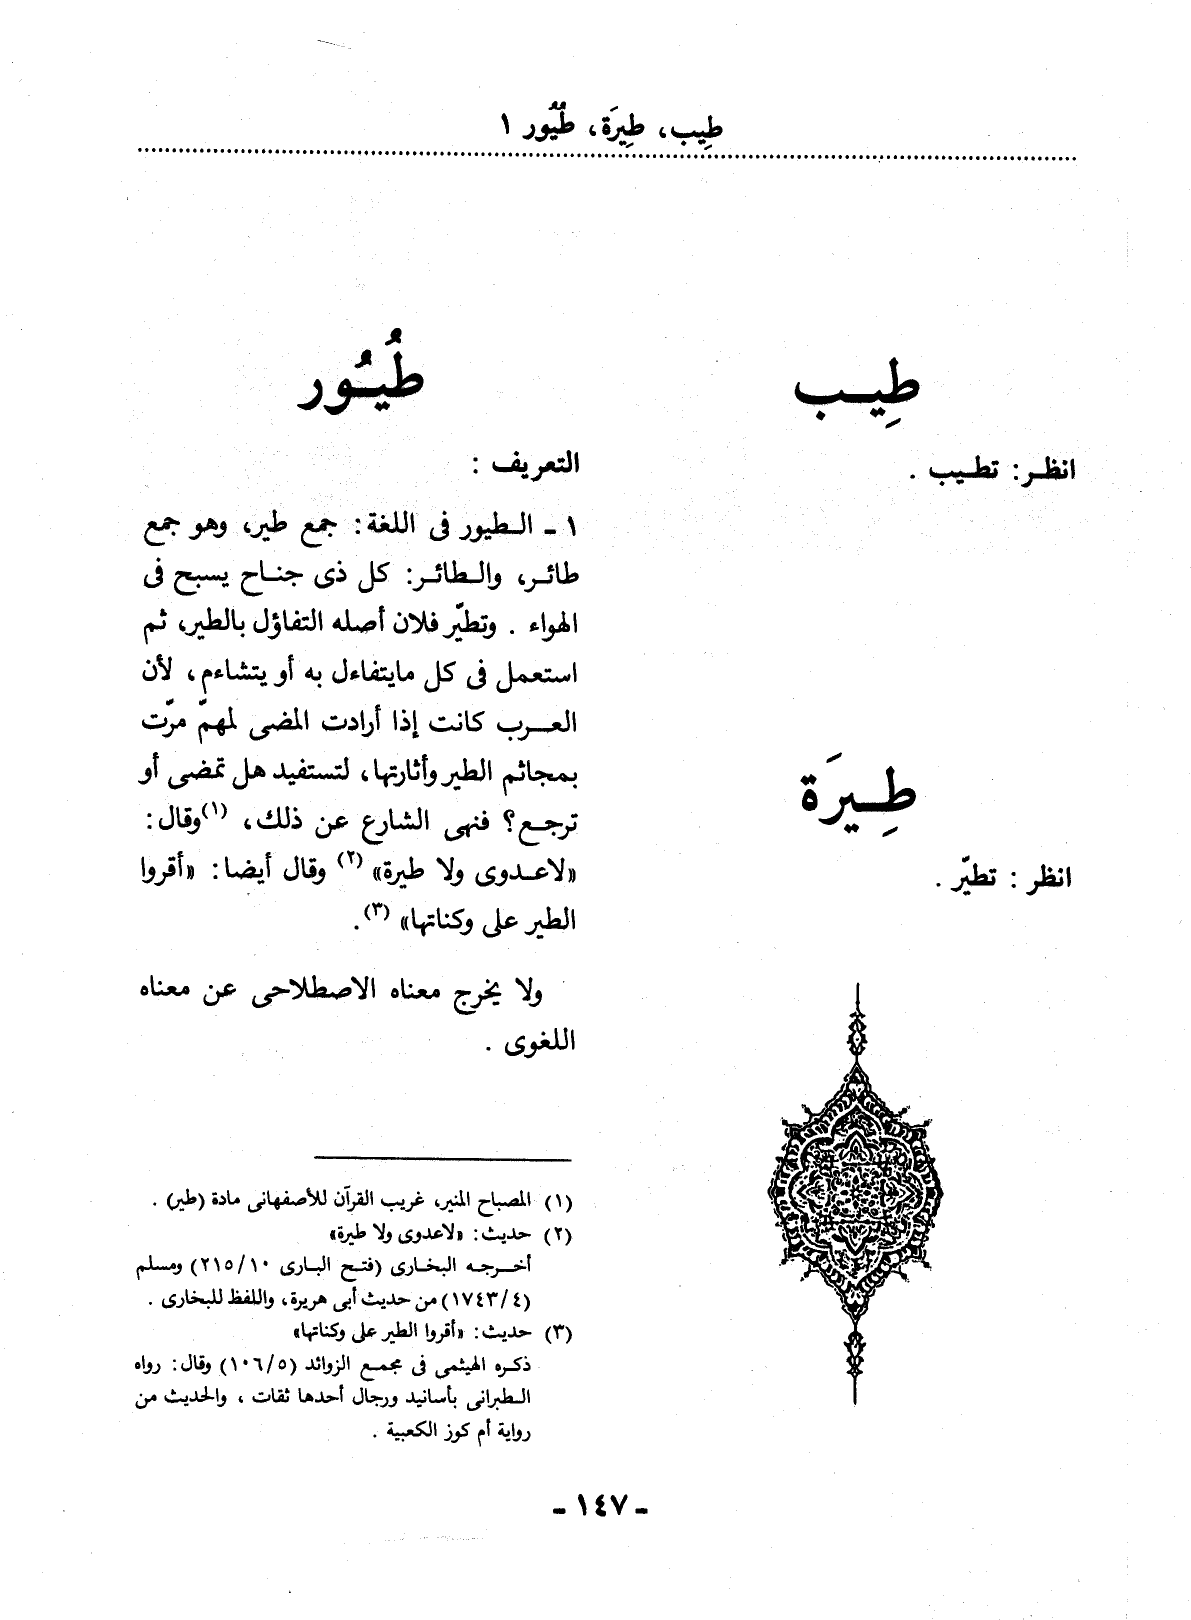 طِيب، طِيرَة، طُيُور ١
طِيـب
انظـر: تطـيب .
طِـيرَة
انظر : تطيّر .
طُيُـور
التعريف :
١ ـ الـطيور فى اللغة: جمع طير، وهو جمع
طائـر، والـطائـر: كل ذى جنـاح يسبح فى
الهواء . وتطيّر فلان أصله التفاؤل بالطير، ثم
استعمل فى كل مايتفاءل به أو يتشاءم، لأن
العـرب كانت إذا أرادت المضى لمهمّ مرّت
بمجاثم الطير وأثارتها، لتستفيد هل تمضى أو
ترجـع؟ فنهى الشارع عن ذلك، (١) وقال:
«لاعـدوى ولا طيرة» (٢) وقال أيضا: «أقروا
الطير على وكناتها» (٣).
ولا يخرج معناه الاصطلاحى عن معناه
اللغوى .
(١) المصباح المنير، غريب القرآن للأصفهانى مادة (طير) .
(٢) حديث: «لاعدوى ولا طيرة»
أخـرجـه البخـارى (فتـح البـارى ١٠/ ٢١٥) ومسلم
(٤/ ١٧٤٣) من حديث أبى هريرة، واللفظ للبخارى .
(٣) حديث: «أقروا الطير على وكناتها»
ذكـره الهيثمى فى مجمـع الزوائد (٥/ ١٠٦) وقال: رواه
الـطبرانى بأسانيد ورجال أحدها ثقات ، والحديث من
رواية أم كوز الكعبية .
ـ ١٤٧ ـ